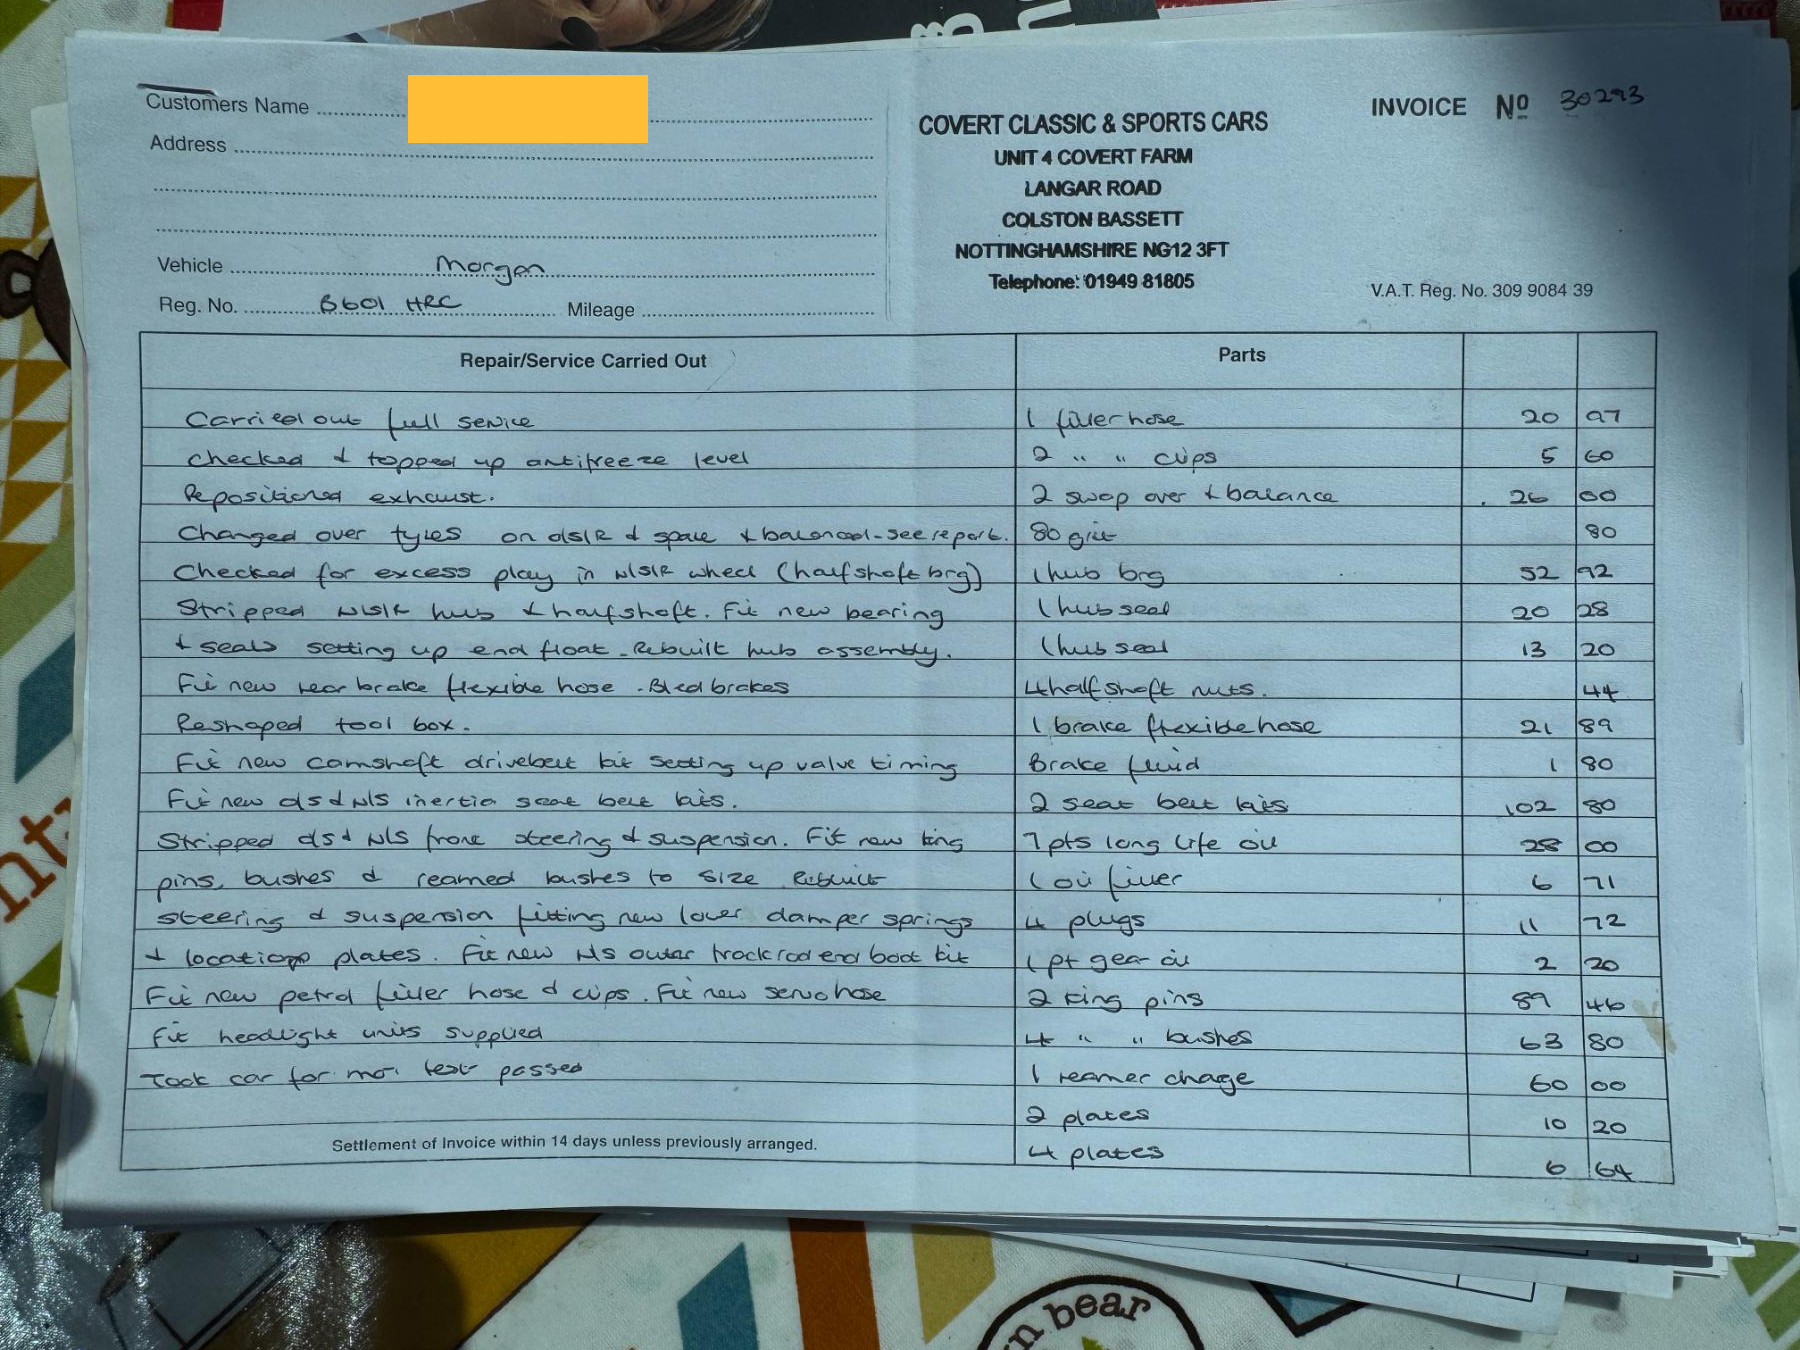 Customers Name
Address
Vehicle Morgan
Reg. No. B601 HRC Mileage
COVERT CLASSIC & SPORTS CARS
UNIT 4 COVERT FARM
LANGAR ROAD
COLSTON BASSETT
NOTTINGHAMSHIRE NG12 3FT
Telephone: 01949 81805
INVOICE No 30293
V.A.T. Reg. No. 309 9084 39
Repair/Service Carried Out Parts
Carried out full service 1 filler hose 20 97
Checked & topped up antifreeze level 2 " " clips 5 60
Repositioned exhaust. 2 swap over & balance 26 00
Changed over tyres on d/s/R & spare & balanced - see report. 80 grit 80
Checked for excess play in N/S/R wheel (halfshaft brg) 1 hub brg 52 92
Stripped N/S/R hub & halfshaft. Fit new bearing 1 hub seal 20 28
& seals setting up end float. Rebuilt hub assembly. 1 hub seal 13 20
Fit new rear brake flexible hose. Bled brakes 4 halfshaft nuts. 44
Reshaped tool box. 1 brake flexible hose 21 89
Fit new camshaft drivebelt kit setting up valve timing Brake fluid 1 80
Fit new d/s & N/S inertia seat belt kits. 2 seat belt kits 102 80
Stripped d/s & N/S front steering & suspension. Fit new king 7 pts long life oil 28 00
pins, bushes & reamed bushes to size. Rebuilt 1 oil filter 6 71
steering & suspension fitting new lower damper springs 4 plugs 11 72
& location plates. Fit new N/S outer track rod end boot kit 1 pt gear oil 2 20
Fit new petrol filler hose & clips. Fit new servo hose 2 king pins 89 46
Fit headlight units supplied 4 " " bushes 63 80
Took car for mot test passed 1 reamer charge 60 00
2 plates 10 20
Settlement of Invoice within 14 days unless previously arranged. 4 plates 6 64
n bear